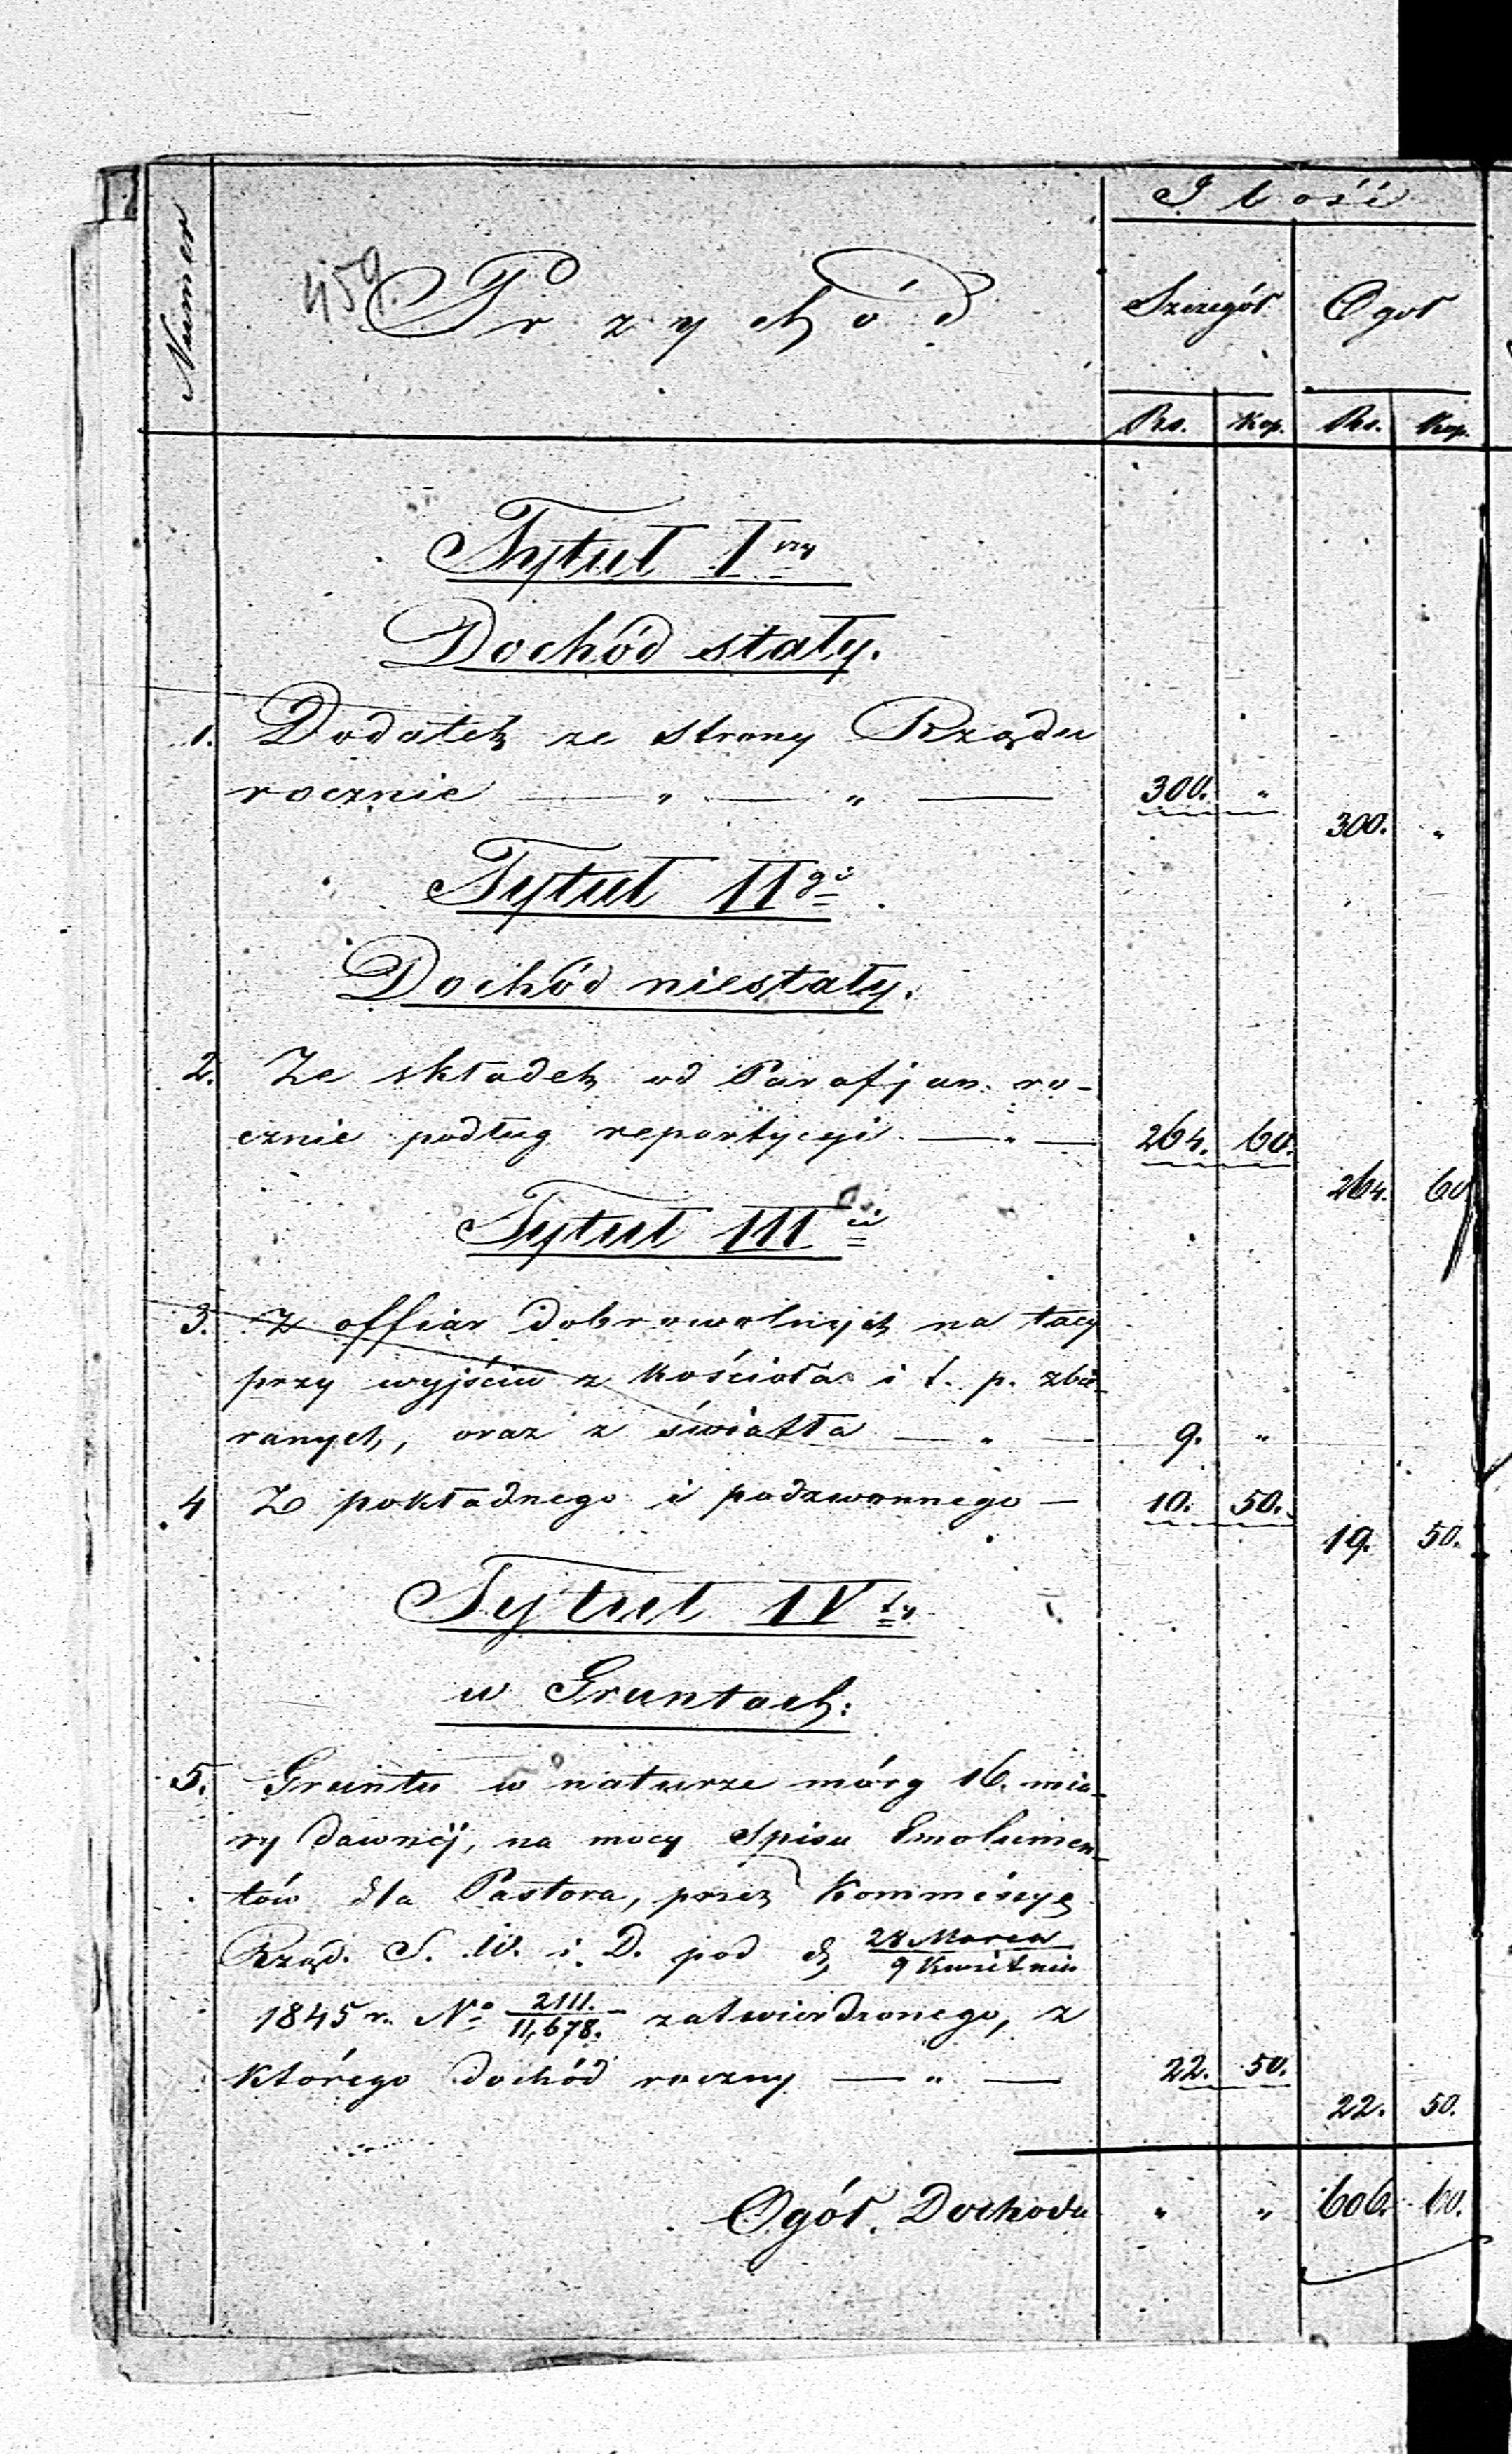 Ilość
Numer
459.
Przychód
Szczegół
Ogół
Rs.
Kop.
Rs.
Kop.
Tytuł I wszy
Dochód stały.
1. Dodatek ze strony Rządu
rocznie — " — " — 300. "
300. "
Tytuł II gi
Dochód niestały.
2. Ze składek od Parafjan ro-
cznie podług repartycyi — " — 264. 60.
264. 60
Tytuł III ci
3. Z offiar dobrowolnych na tacy
przy wyjściu z kościoła i t. p. zbie-
ranych, oraz z światła — " — 9. "
4 Z pokładnego i podzwonnego — 10. 50.
19. 50.
Tytuł IV ty
w Gruntach:
5. Gruntu w naturze mórg 16. mia-
ry dawnéj, na mocy Spisu Emolumen-
tów dla Pastora, przez Kommissyę
Rząd. S. W. i D. pod d. 28 Marca / 9 Kwietnia
1845 r. No 2111. / 11,678. zatwierdzonego, z
którego dochód roczny — " — 22. 50.
22. 50.
Ogół Dochodu " " 606. 60.